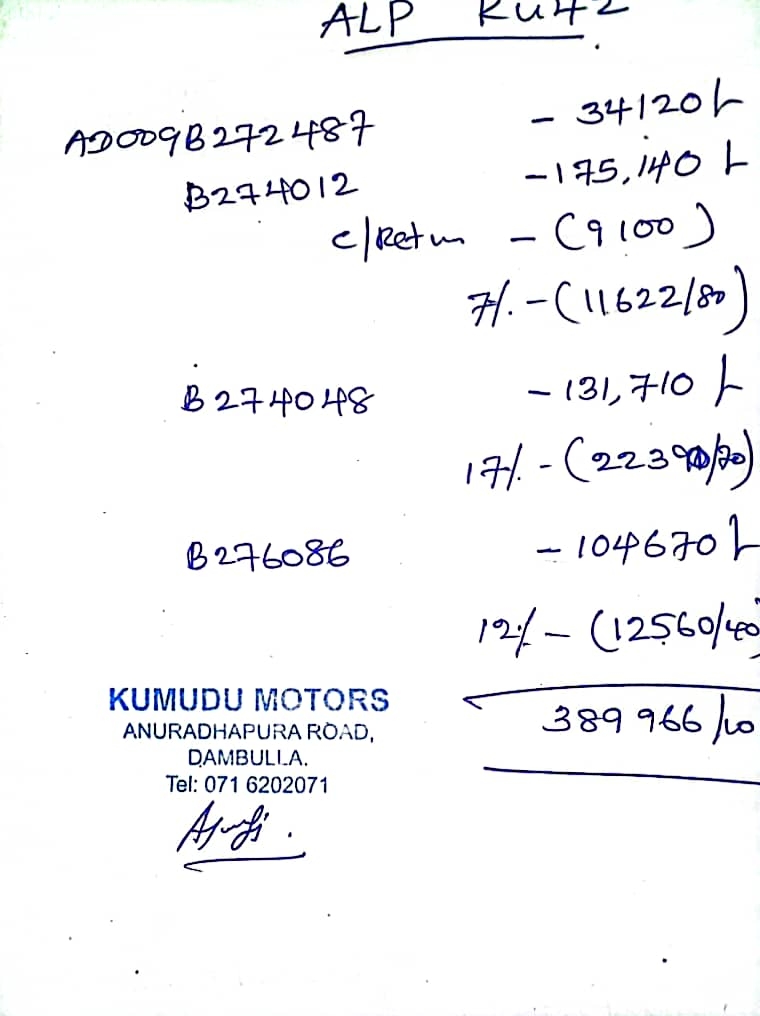 ALP KU42
AD009B272487 - 34120/-
B274012 - 175,140/-
c/Return - (9100)
7/. - (11622/80)
B274048 - 131,710/-
17/. - (22390/70)
B276086 - 104670/-
12/. - (12560/40)
389 966/10
KUMUDU MOTORS
ANURADHAPURA ROAD,
DAMBULLA.
Tel: 071 6202071